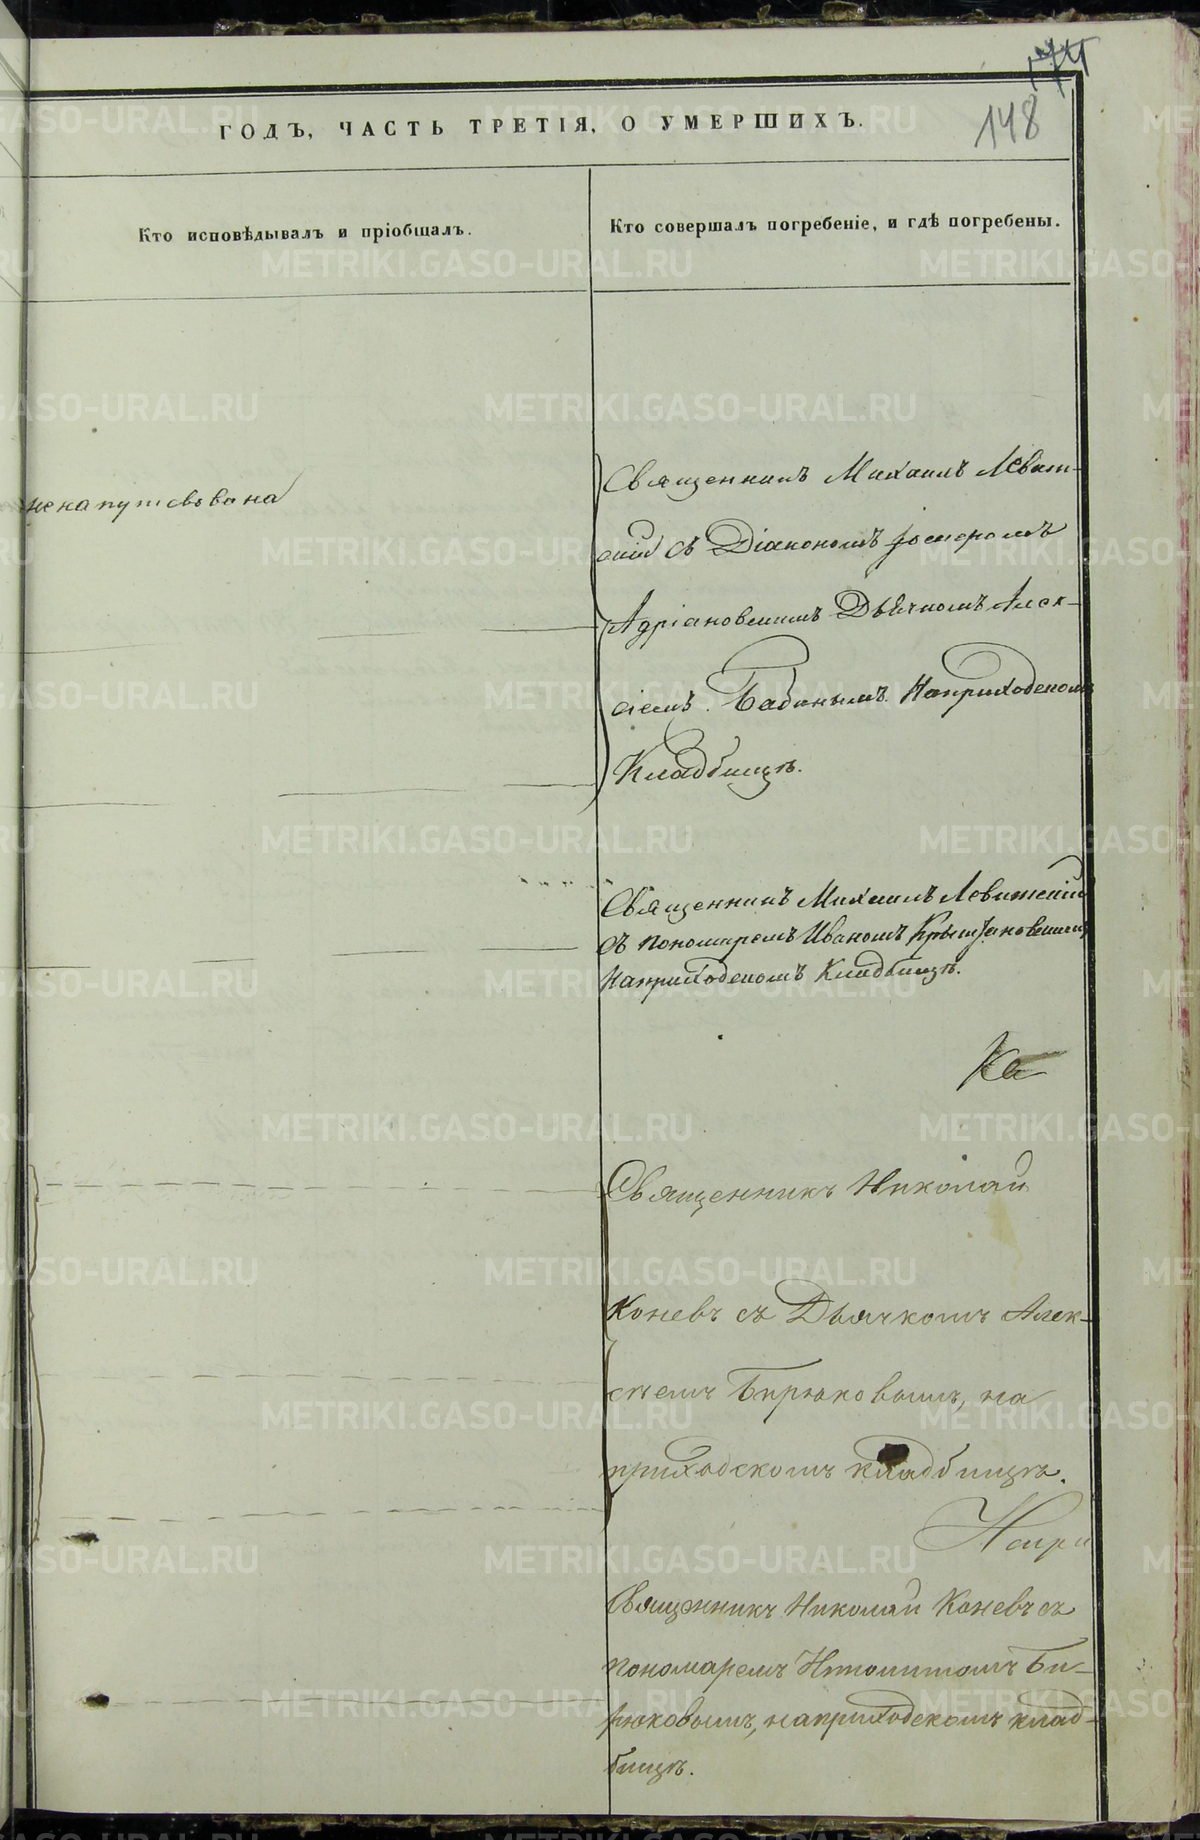 148
ГОДЪ, ЧАСТЬ ТРЕТІЯ, О УМЕРШИХЪ.
Кто исповѣдывалъ и пріобщалъ.
Кто совершалъ погребеніе, и гдѣ погребены.
ненапутсвована
Священникъ Михаилъ Левит-
скій съ Діакономъ
Адріановскимъ Дьячкомъ Алек-
сіемъ Бабинымъ. Наприходскомъ
Кладбищѣ.
Священникъ Михаилъ Левитскій
съ пономаремъ Иваномъ
Наприходскомъ Кладбищѣ.
Ка
Священникъ Николай
Коневъ съ Дьячкомъ Алек-
сѣемъ Бирюковымъ, на
приходскомъ кладбищѣ.
Напри
Священникъ Николай Коневъ съ
пономаремъ Би-
рюковымъ, наприходскомъ клад-
бищѣ.
METRIKI.GASO-URAL.RU